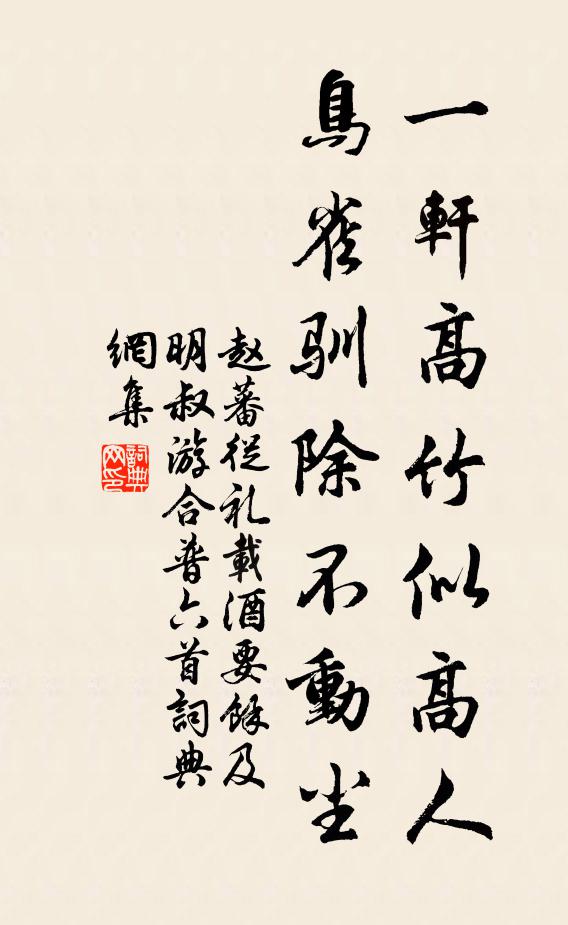 一軒高竹似高人
鳥雀馴除不動尘
赵蕃從礼載酒要餘及
明叔游合普六首詞典
網集
詞典網印